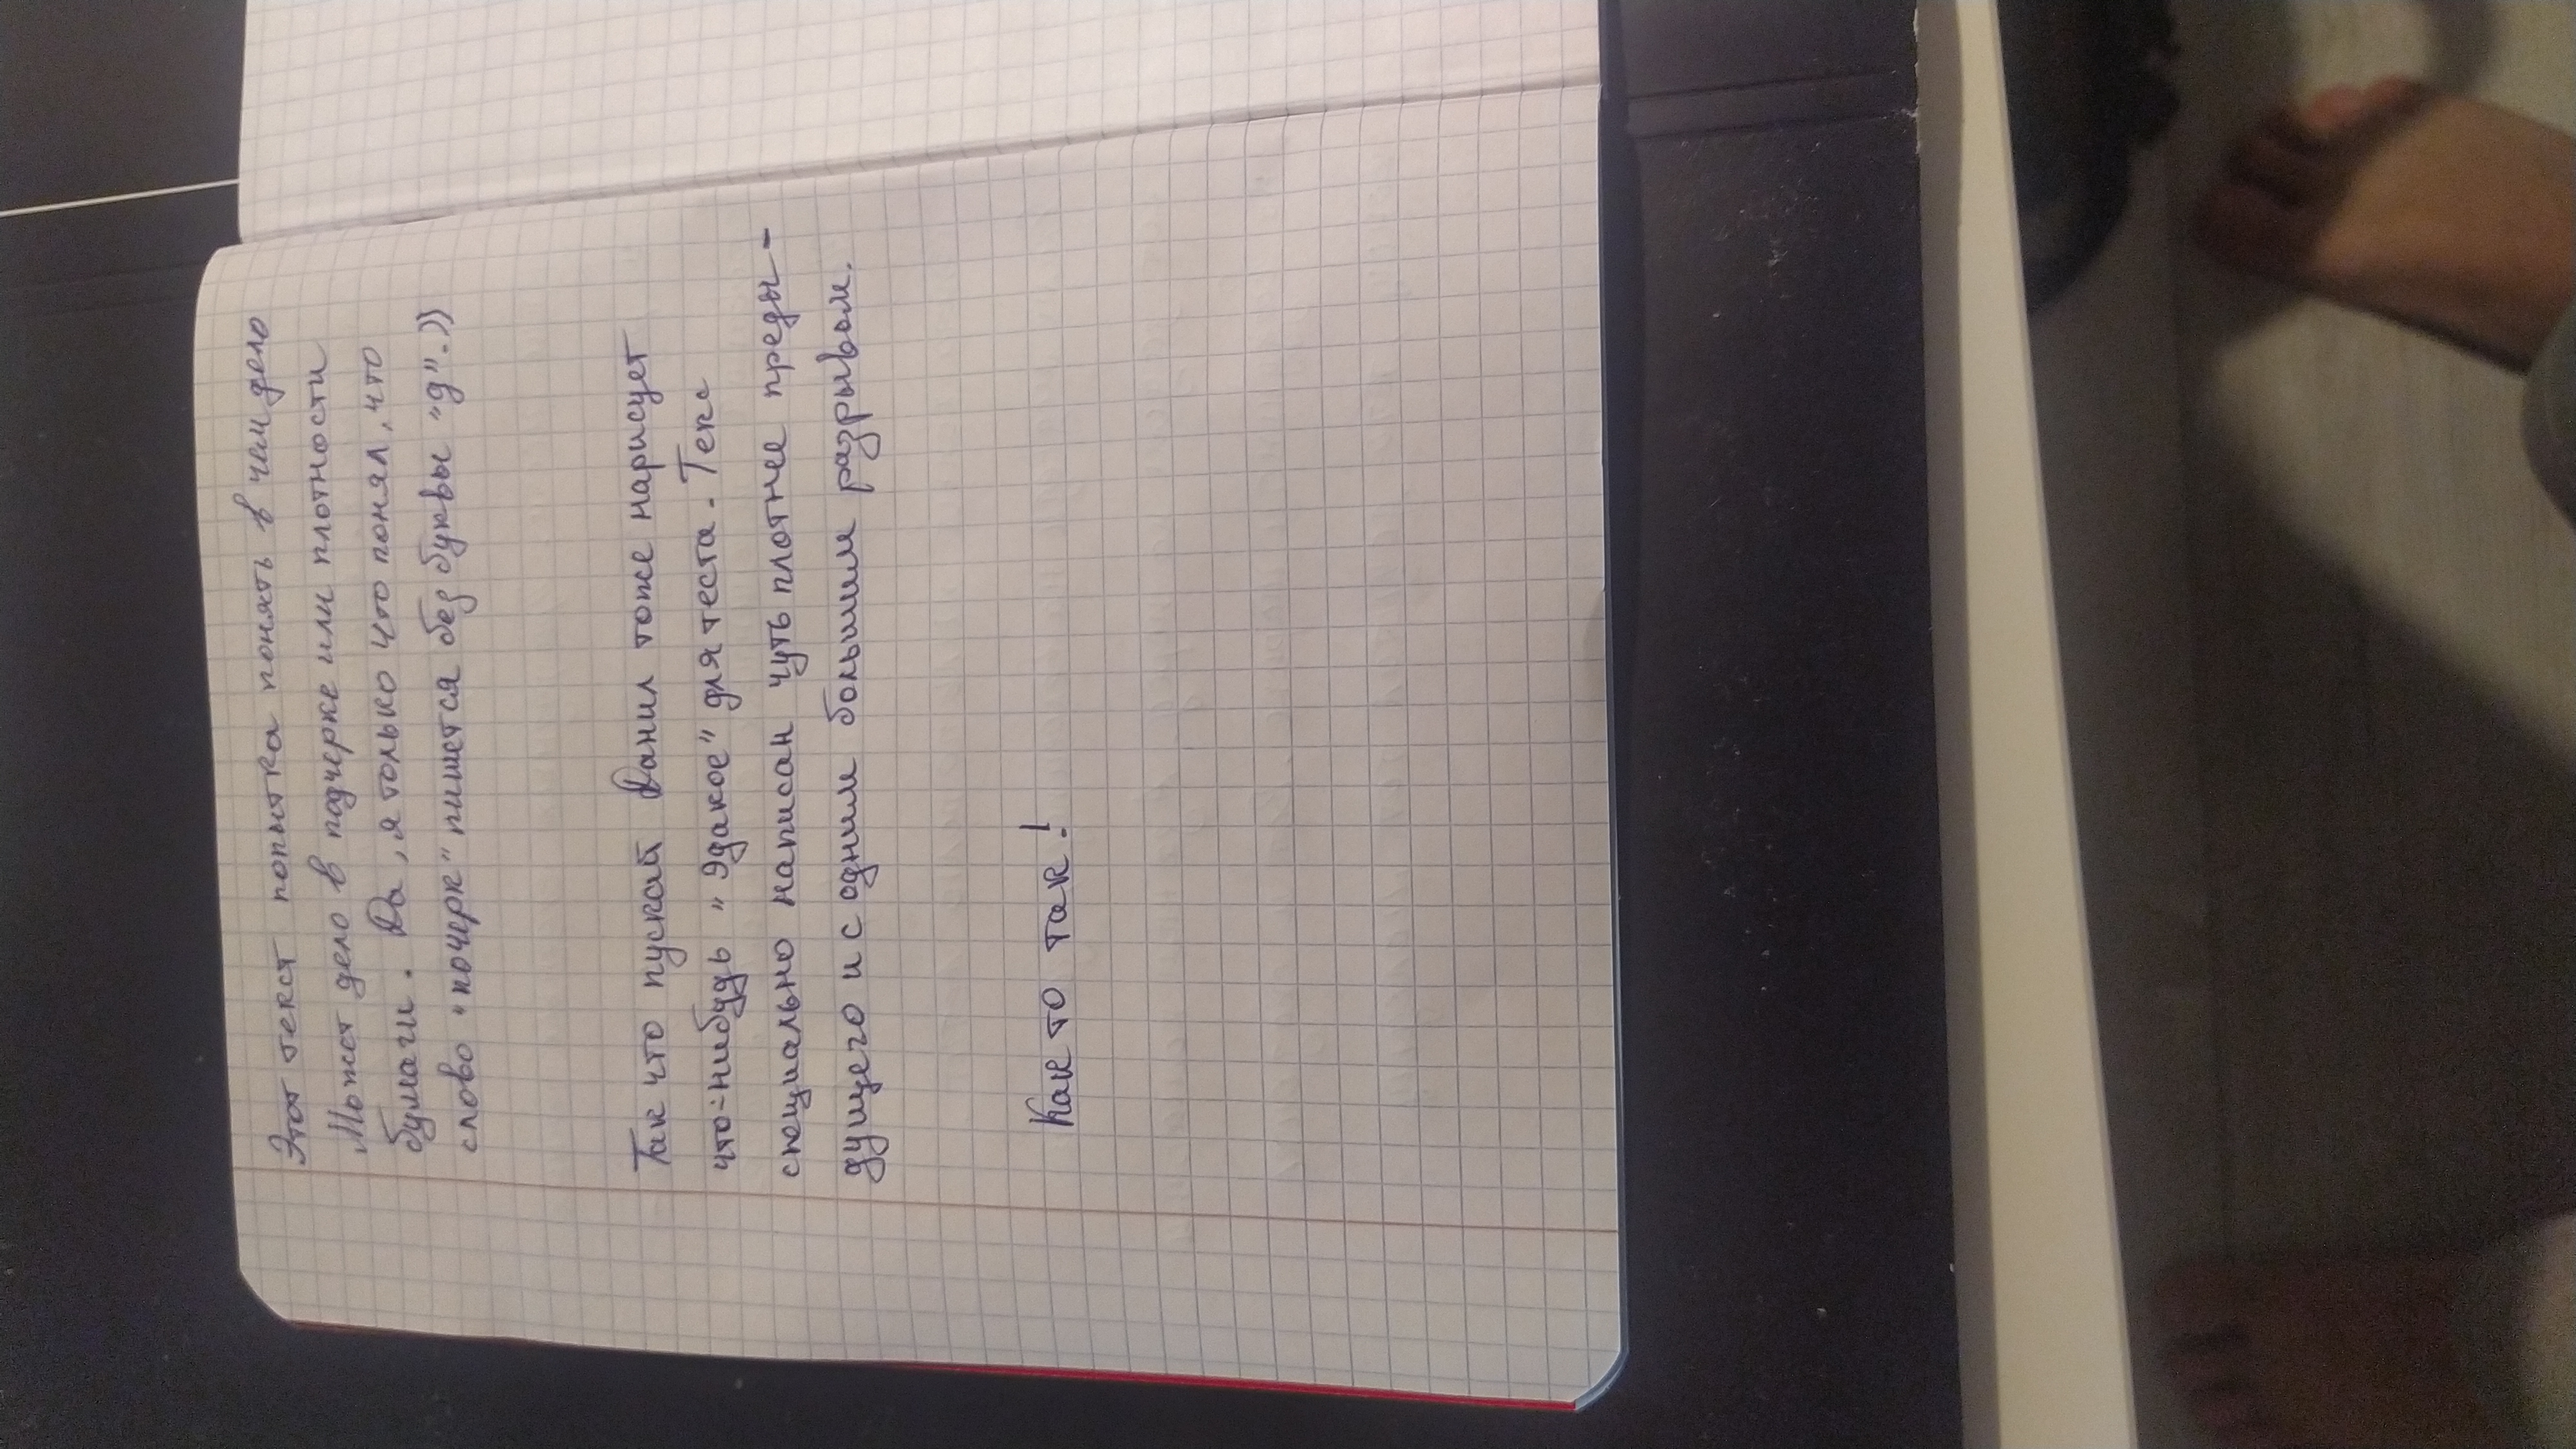 Этот текст попытка понять в чем дело
Может дело в подчерке или плотности
бумаги. Да, я только что понял, что
слово "почерк" пишется без буквы "д".))
Так что пускай Данил тоже нарисует
что-нибудь "Эдакое" для теста. Текс
специально написан чуть плотнее преды-
дущего и с одним большим разрывом.
Как то так!